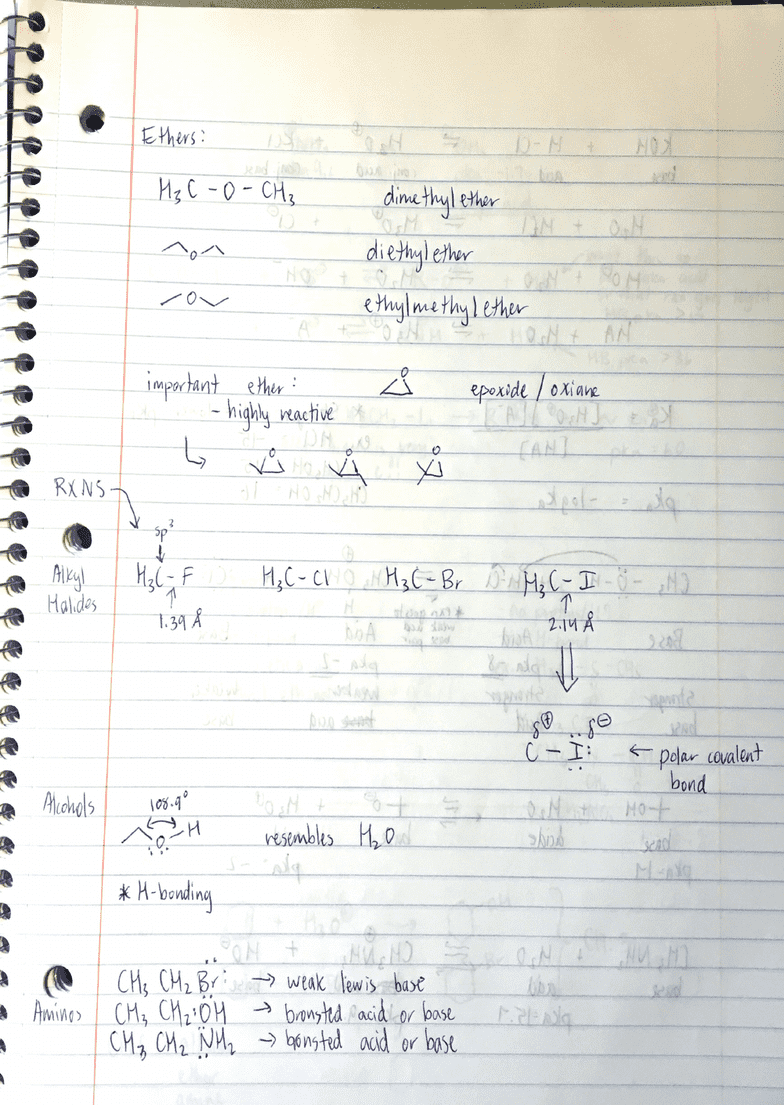 Ethers:
H₃C - O - CH₃ dimethylether
O diethylether
O ethylmethylether
important ether: O epoxide / oxiane
- highly reactive
O O O
RXNS
sp³
Alkyl Halides
H₃C - F H₃C - Cl H₃C - Br H₃C - I
1.39 Å 2.14 Å
δ⊕ δ⊖
C - I: ← polar covalent bond
Alcohols
108.9°
O H resembles H₂O
* H-bonding
CH₃ CH₂ Br: → weak lewis base
Aminos
CH₃ CH₂ :OH → bronsted acid or base
CH₃ CH₂ NH₂ → bonsted acid or base